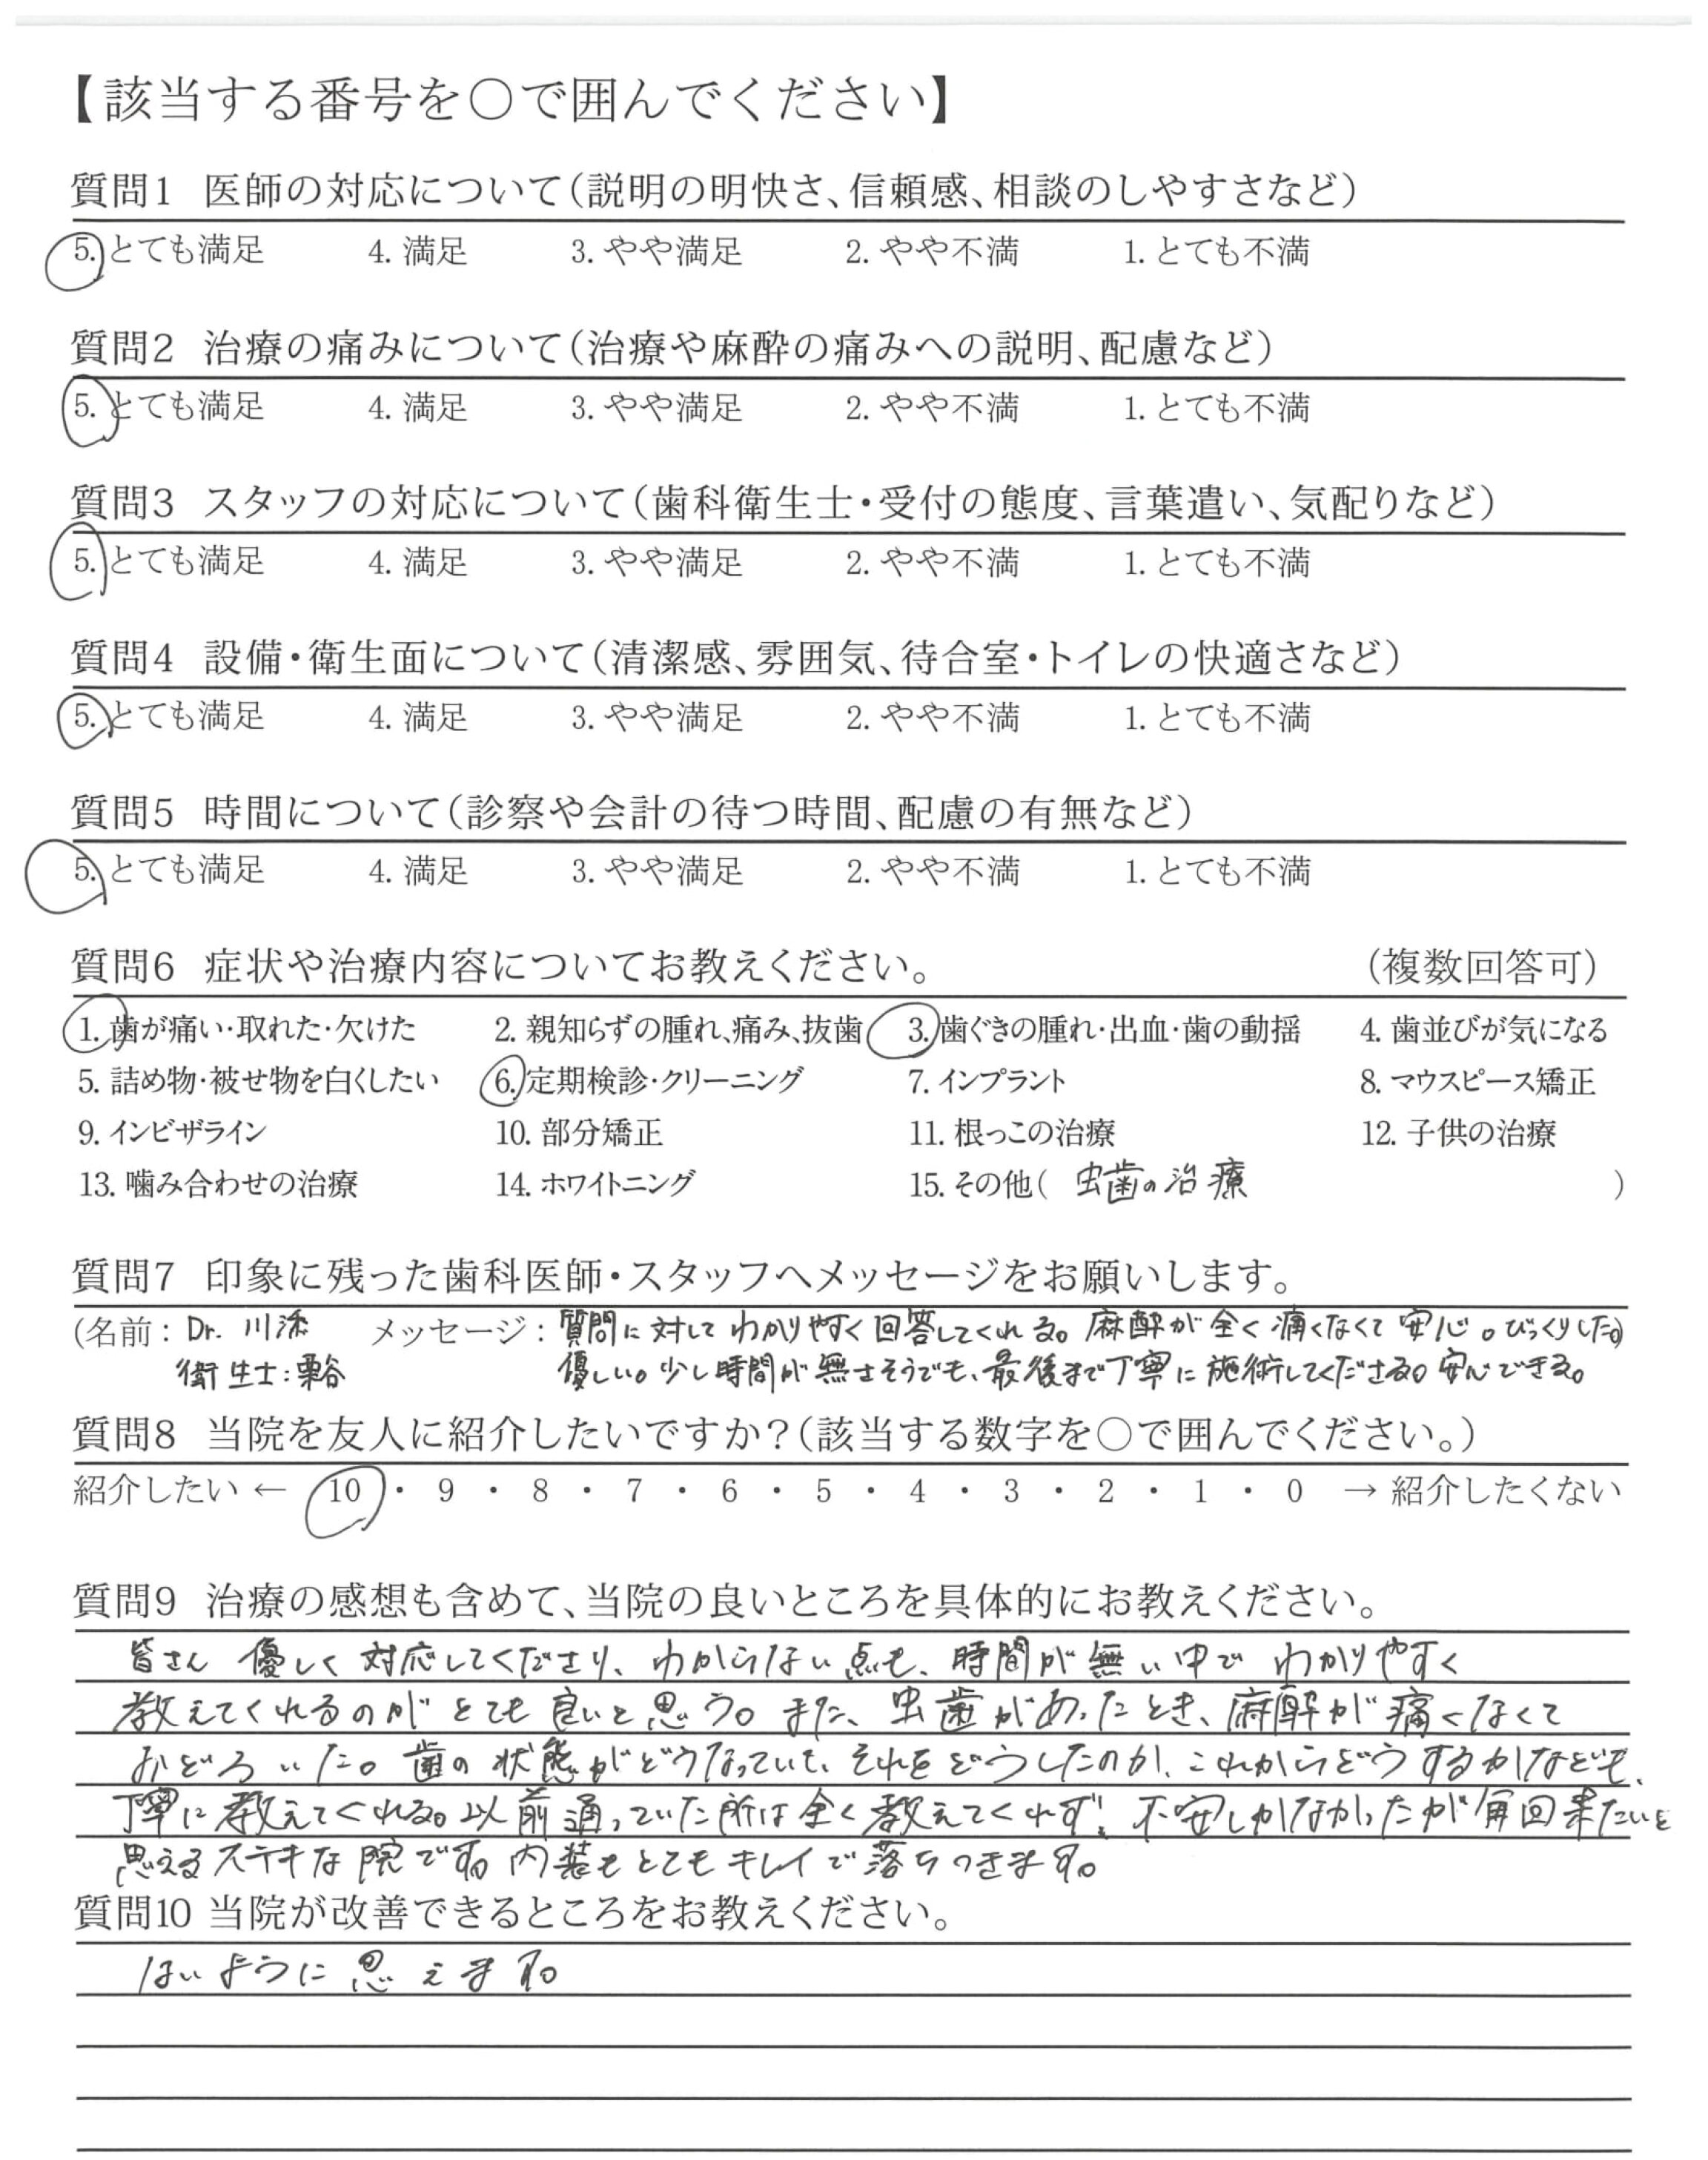 【該当する番号を○で囲んでください】
質問1 医師の対応について（説明の明快さ、信頼感、相談のしやすさなど）
5. とても満足 4. 満足 3. やや満足 2. やや不満 1. とても不満
質問2 治療の痛みについて（治療や麻酔の痛みへの説明、配慮など）
5. とても満足 4. 満足 3. やや満足 2. やや不満 1. とても不満
質問3 スタッフの対応について（歯科衛生士・受付の態度、言葉遣い、気配りなど）
5. とても満足 4. 満足 3. やや満足 2. やや不満 1. とても不満
質問4 設備・衛生面について（清潔感、雰囲気、待合室・トイレの快適さなど）
5. とても満足 4. 満足 3. やや満足 2. やや不満 1. とても不満
質問5 時間について（診察や会計の待つ時間、配慮の有無など）
5. とても満足 4. 満足 3. やや満足 2. やや不満 1. とても不満
質問6 症状や治療内容についてお教えください。 （複数回答可）
1. 歯が痛い・取れた・欠けた 2. 親知らずの腫れ、痛み、抜歯 3. 歯ぐきの腫れ・出血・歯の動揺 4. 歯並びが気になる
5. 詰め物・被せ物を白くしたい 6. 定期検診・クリーニング 7. インプラント 8. マウスピース矯正
9. インビザライン 10. 部分矯正 11. 根っこの治療 12. 子供の治療
13. 噛み合わせの治療 14. ホワイトニング 15. その他（ 虫歯の治療 ）
質問7 印象に残った歯科医師・スタッフへメッセージをお願いします。
（名前：Dr. 川添 メッセージ：質問に対してわかりやすく回答してくれる。麻酔が全く痛くなくて安心。びっくりした。）
衛生士：栗谷 優しい。少し時間が無さそうでも、最後まで丁寧に施術してくださる。安心できる。
質問8 当院を友人に紹介したいですか？（該当する数字を○で囲んでください。）
紹介したい ← 10 ・ 9 ・ 8 ・ 7 ・ 6 ・ 5 ・ 4 ・ 3 ・ 2 ・ 1 ・ 0 → 紹介したくない
質問9 治療の感想も含めて、当院の良いところを具体的にお教えください。
皆さん 優しく 対応してくださり、わからない点も、時間が無い中で わかりやすく
教えてくれるのが とても 良いと思う。また、虫歯があったとき、麻酔が痛くなくて
おどろいた。歯の状態がどうなっていて、それをどうしたのか、これからどうするかなども、
丁寧に教えてくれる。以前通っていた所は全く教えてくれず、不安しかなかったが毎回来たいと
思えるステキな院です。内装もとてもキレイで落ちつきます。
質問10 当院が改善できるところをお教えください。
ないように思えます。